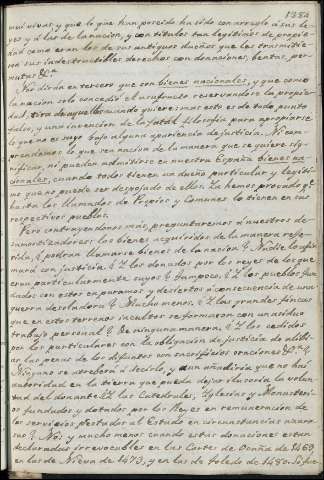 1380
muí vivas, y que lo que han poseido ha sido con arreglo à sus le-
yes y à las de la nacion, y con titulos tan legitimos de propie-
dad como eran los de sus antiguos dueños que les transmitie-
ron sus indestructibles derechos con donaciones, ventas, per-
mutas &ca.
No dirán en tercero que son bienes nacionales, y que como
la nacion solo concedió el usufructo reservandose la propie-
dad, tira de aquellos cuando quiere; mas esto es de todo punto
falso, y una invencion de la fatal filosofia para apropiarse
lo que no es suyo bajo alguna apariencia de justicia. Ni com-
prendemos lo que sea nacion de la manera que se quiere sig-
nificar, ni pueden admitirse en nuestra España bienes na-
cionales, cuando todos tienen un dueño particular y legiti-
mo que no puede ser despojado de ellos. La hemos procado qe.
hasta los llamados de Propios y Comunes lo tienen en sus
respectivos pueblos.
Pero contrayendonos más, preguntaremos à nuestros de-
samortizadores: los bienes adquiridos de la manera refe-
rida, ¿podran llamarse bienes de la nacion? Nadie lo afir-
mará con justicia. ¿Y los donados por los reyes de los que
eran particularmente suyos? Tampoco. ¿Y los pueblos fun-
dados con estos en paramos y desiertos à consecuencia de una
guerra desoladora? Mucho menos. ¿Y las grandes fincas
que en estos terrenos incultos se formaron con un asiduo
trabajo personal? De ninguna manera. ¿Y los cedidos
por los particulares con la obligacion de justicia de alibi-
ar las penas de los difuntos con sacrificios oraciones &a.?
Ninguno se atreverá à decirlo, y aun añadiria que no hai
autoridad en la tierra que pueda dejar ilusoria la volun-
tad del donante. ¿Y las Catedrales, Yglesias y Monasteri-
os fundados y dotados por los Reyes en remuneracion de
los servicios prestados al Estado en circunstancias azaro-
sas? No: y mucho menos cuando estas donaciones estan
declaradas irrevocables en las Cortes de Ocaña de 1469,
en las de Nieva de 1473, y en las de Toledo de 1480. Si fue